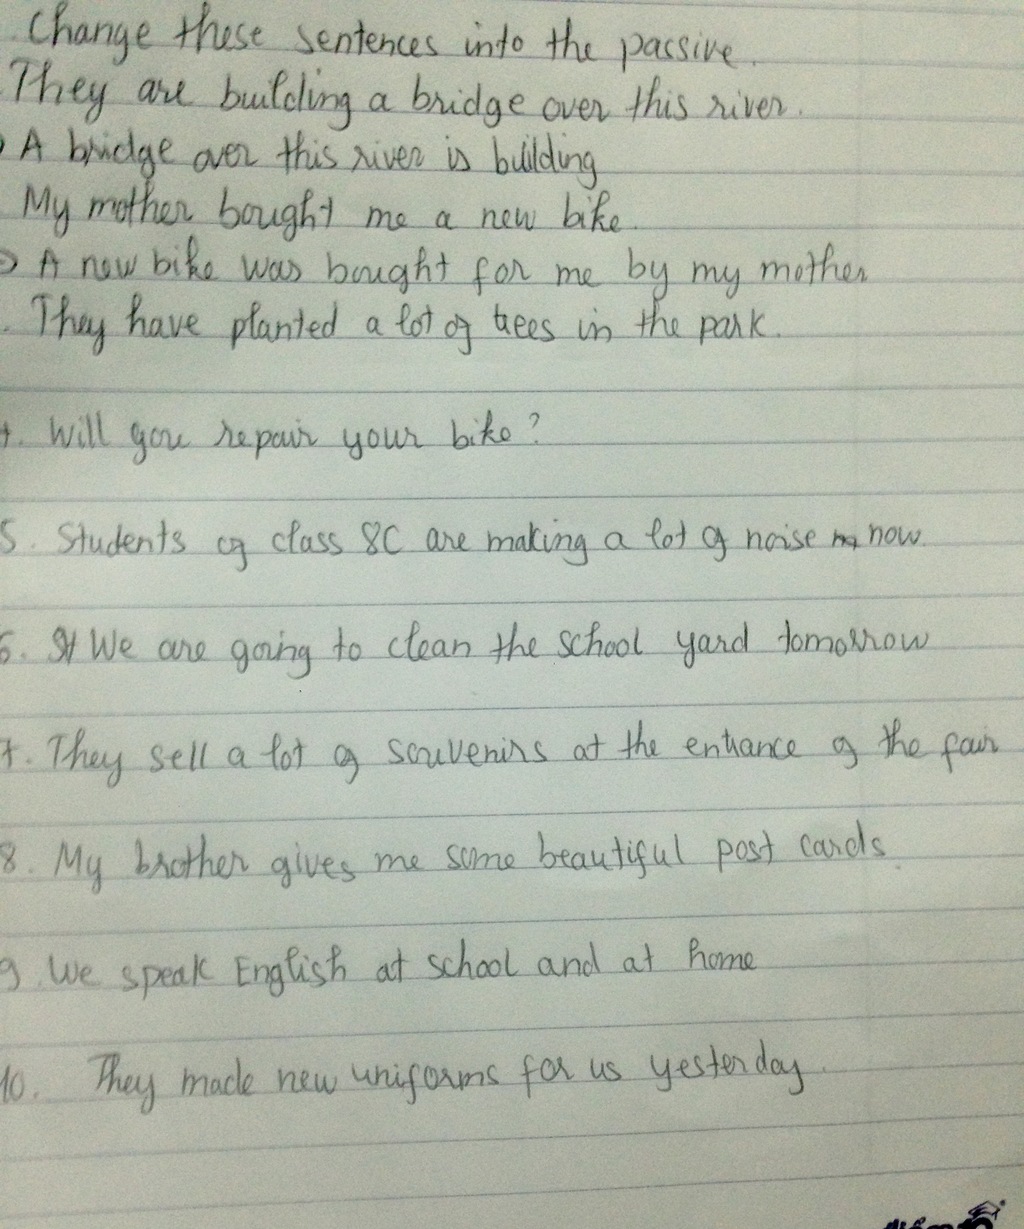 Change these sentences into the passive.
They are building a bridge over this river.
A bridge over this river is building
My mother bought me a new bike.
A new bike was bought for me by my mother
They have planted a lot of trees in the park.
4. Will you repair your bike?
5. Students of class 8C are making a lot of noise now.
6. We are going to clean the school yard tomorrow
7. They sell a lot of souvenirs at the entrance of the fair
8. My brother gives me some beautiful post cards.
9. We speak English at school and at home
10. They made new uniforms for us yesterday.